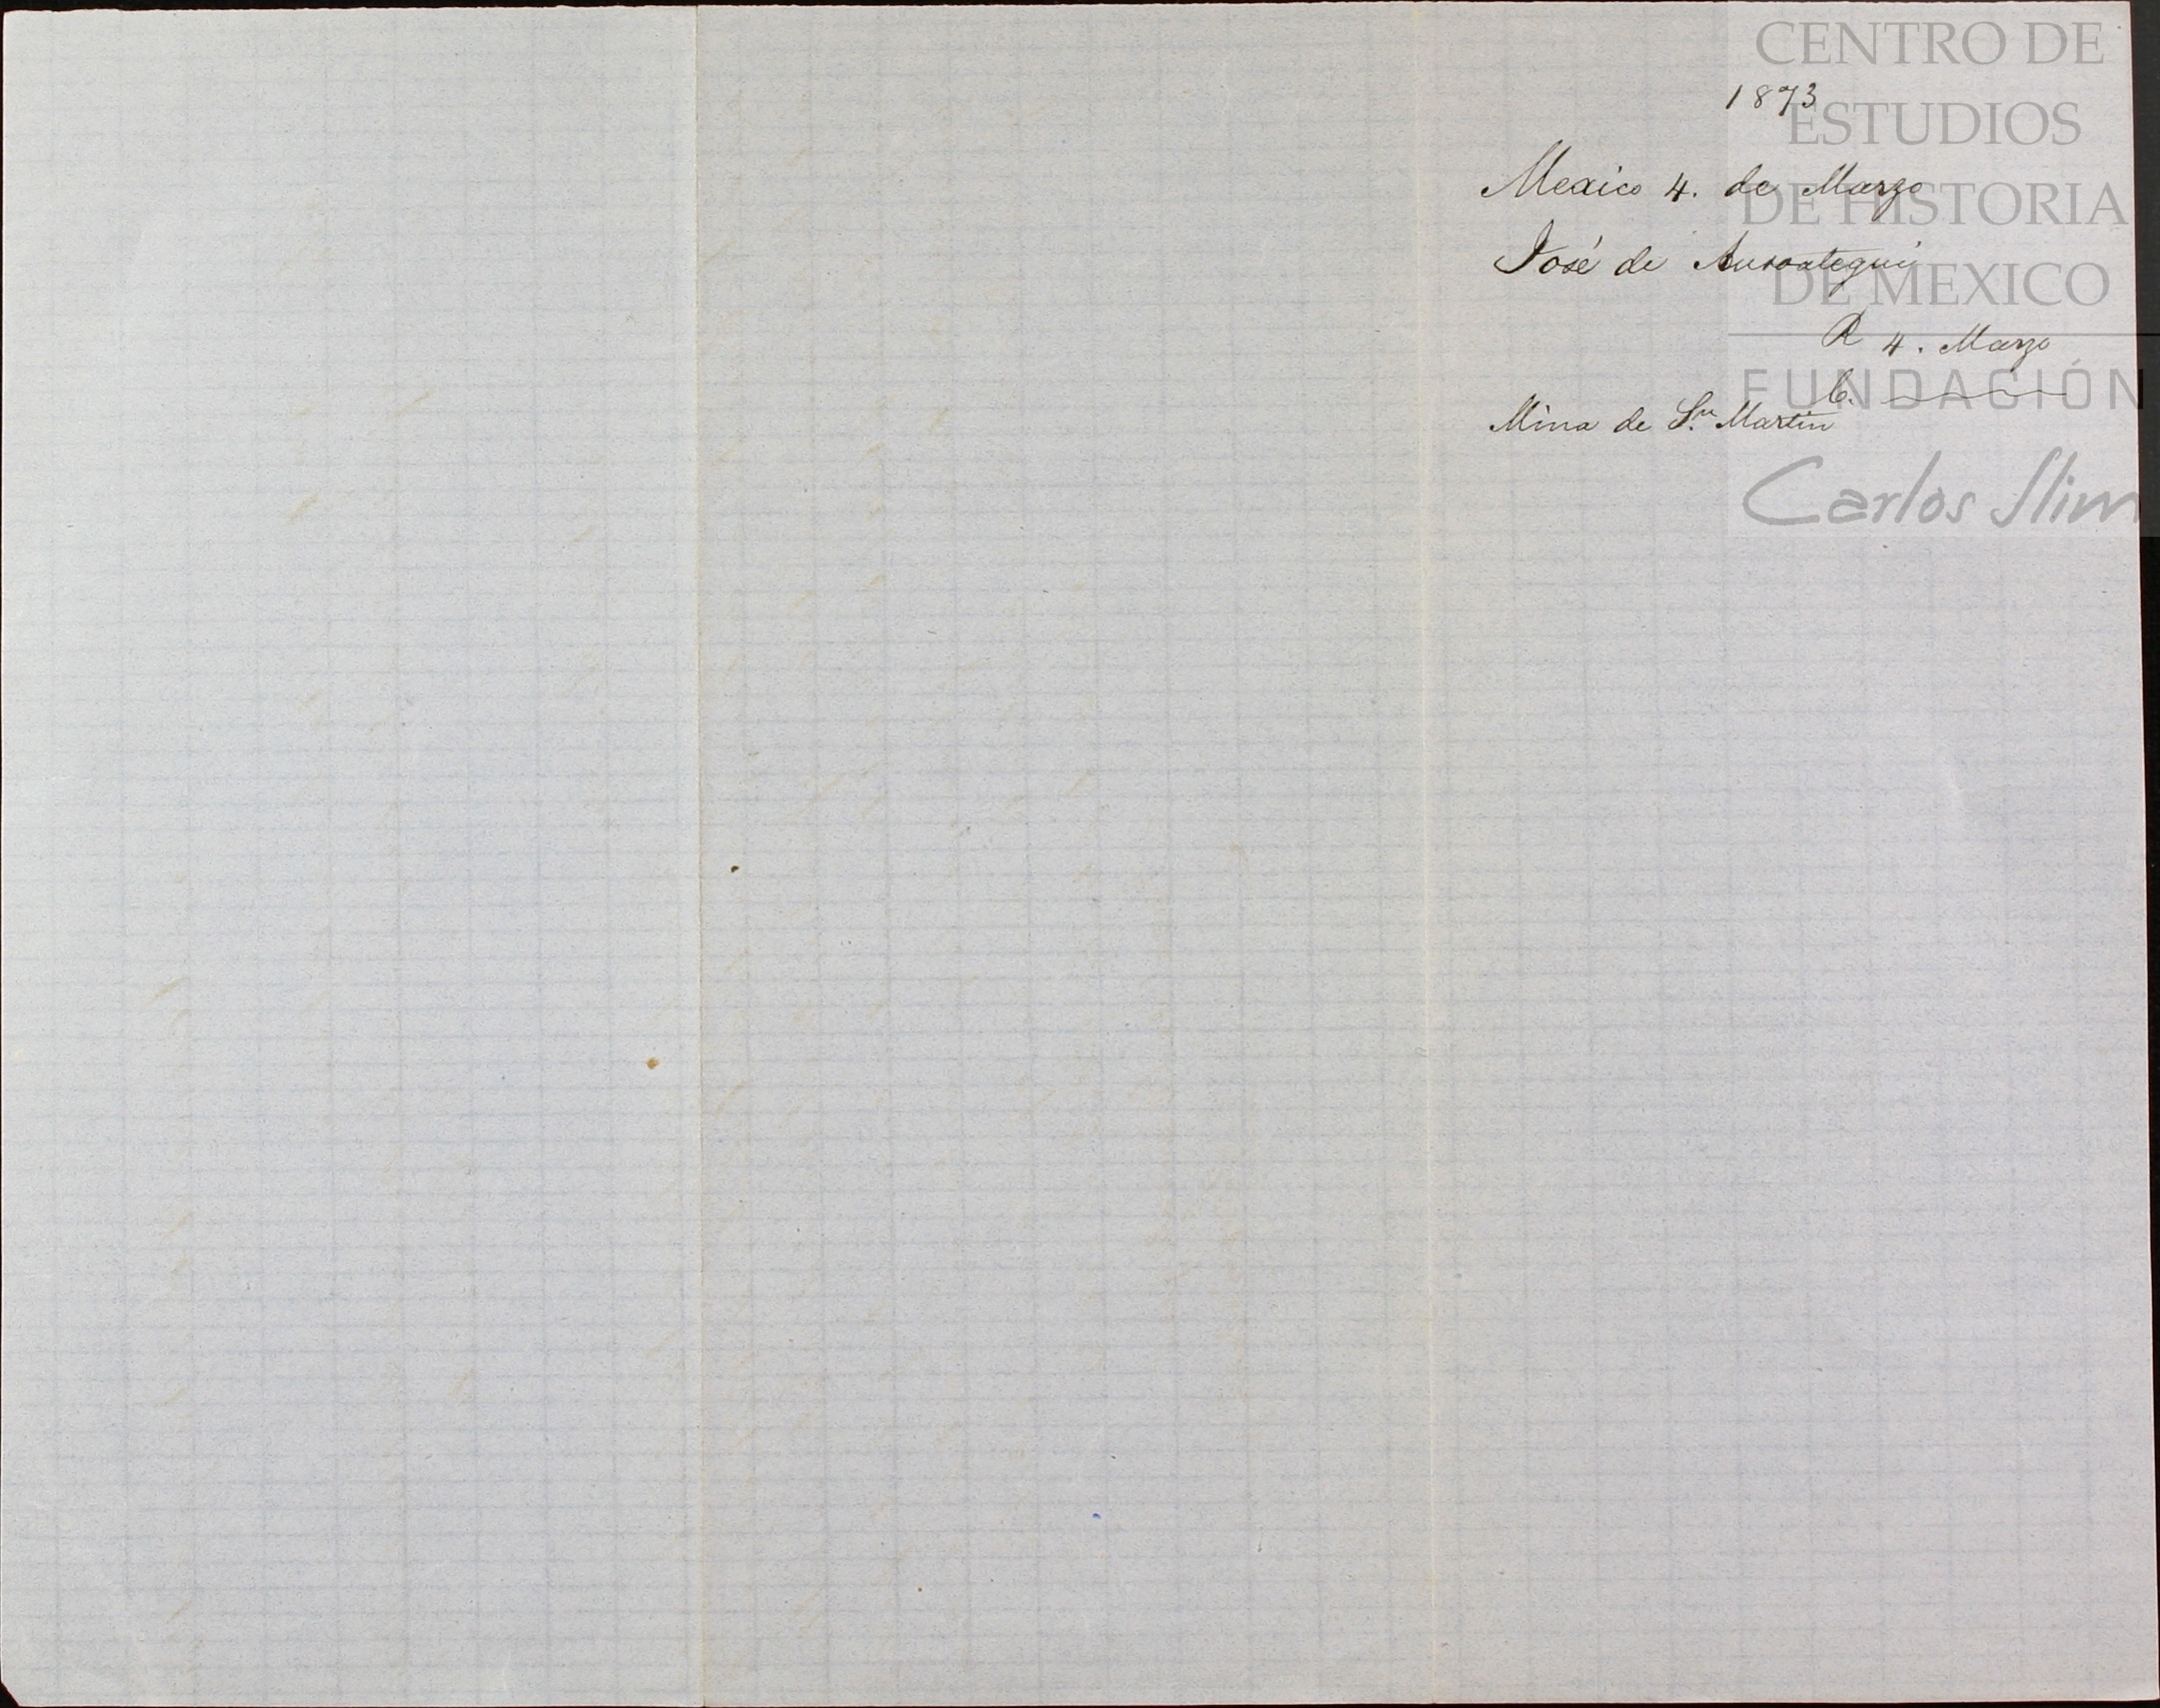 CENTRO DE
ESTUDIOS
DE HISTORIA
DE MEXICO
FUNDACIÓN
Carlos Slim
1873
Mexico 4. de Marzo
José de Ansoategui
R 4. Marzo
C.
Mina de Sn. Martin